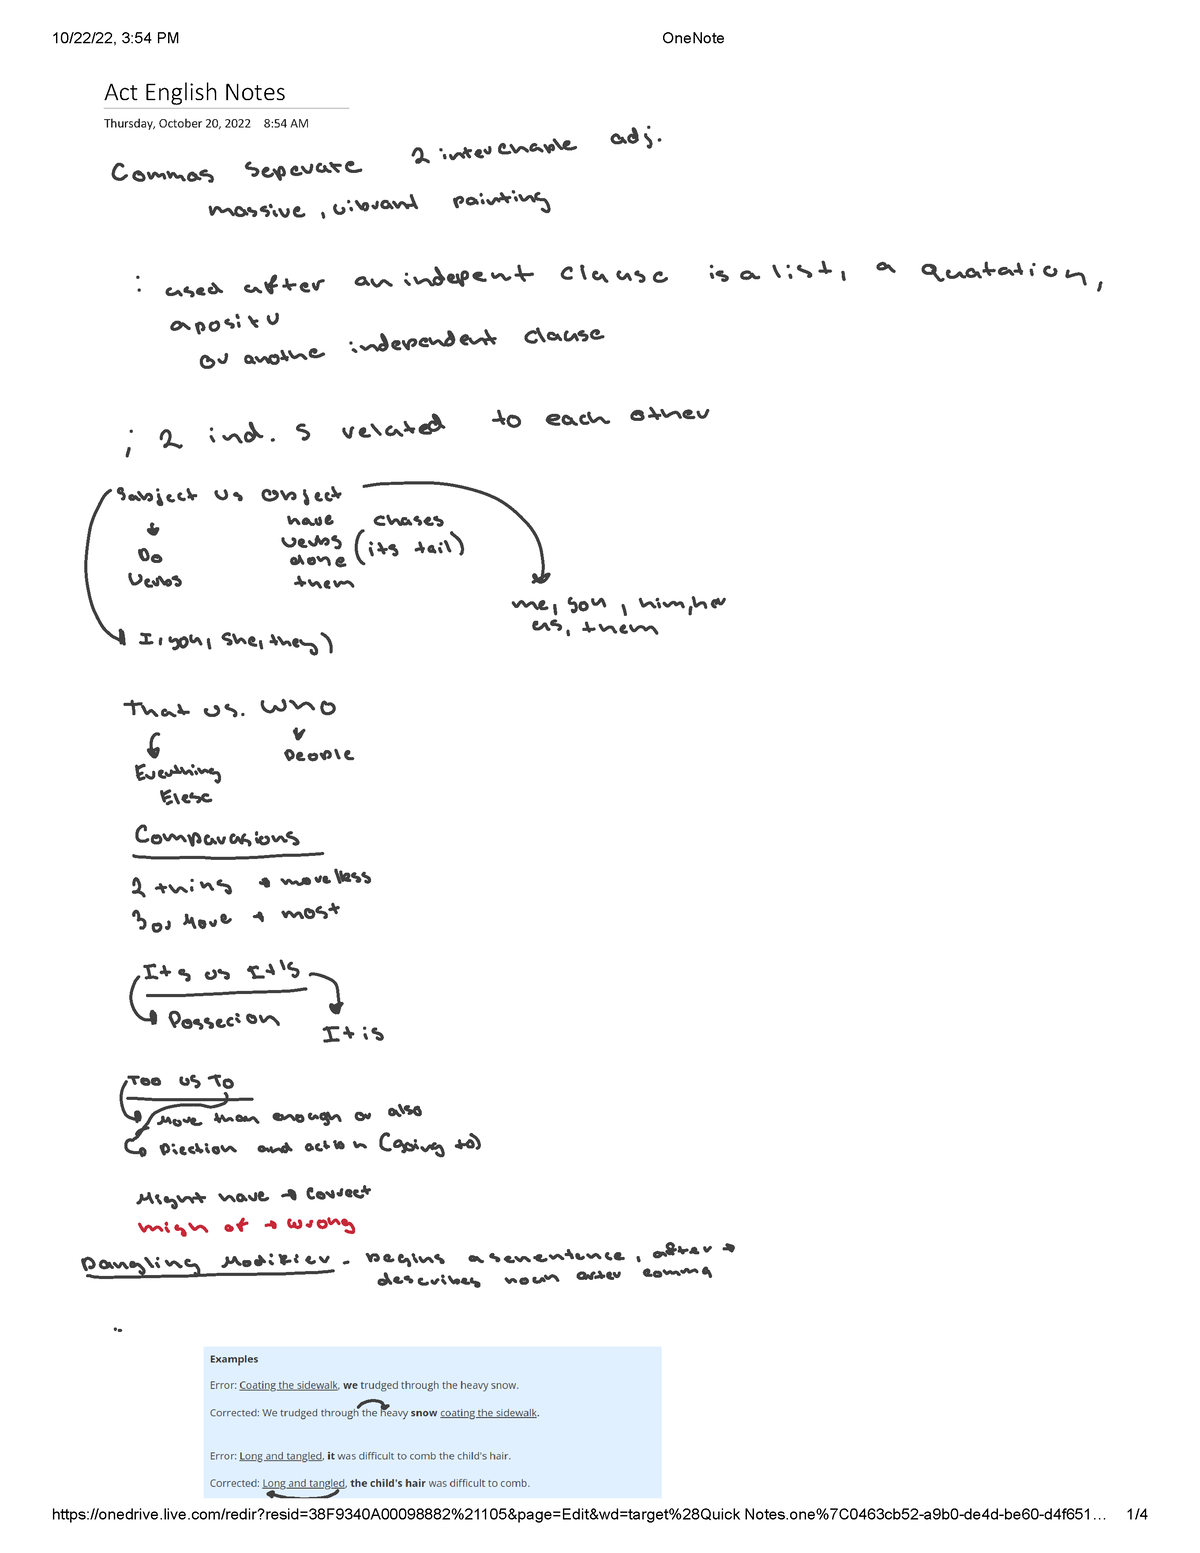 10/22/22, 3:54 PM OneNote
Act English Notes
Thursday, October 20, 2022 8:54 AM
Commas Seperate 2 interchanple adj.
massive, vibrant painting
: used after an indepent clause is a list, a quatation,
apositv
or anothe independent clause
; 2 ind. s related to each other
Subject vs Object
Do
Verbs
have
verbs
done
them
chases
(its tail)
me, you, him, her
us, them
I, you, she, they)
That vs. Who
Everthing
Elese
People
Comparasions
2 thing → more/less
3 or More → most
Its vs It's
Possecion
It is
Too vs To
More than enough or also
Diection and action (going to)
Might have → Correct
migh of → wrong
Dangling Modifier - Begins a senentence, after →
describes noun after comma
..
Examples
Error: Coating the sidewalk, we trudged through the heavy snow.
Corrected: We trudged through the heavy snow coating the sidewalk.
Error: Long and tangled, it was difficult to comb the child's hair.
Corrected: Long and tangled, the child's hair was difficult to comb.
https://onedrive.live.com/redir?resid=38F9340A00098882%21105&page=Edit&wd=target%28Quick Notes.one%7C0463cb52-a9b0-de4d-be60-d4f651… 1/4